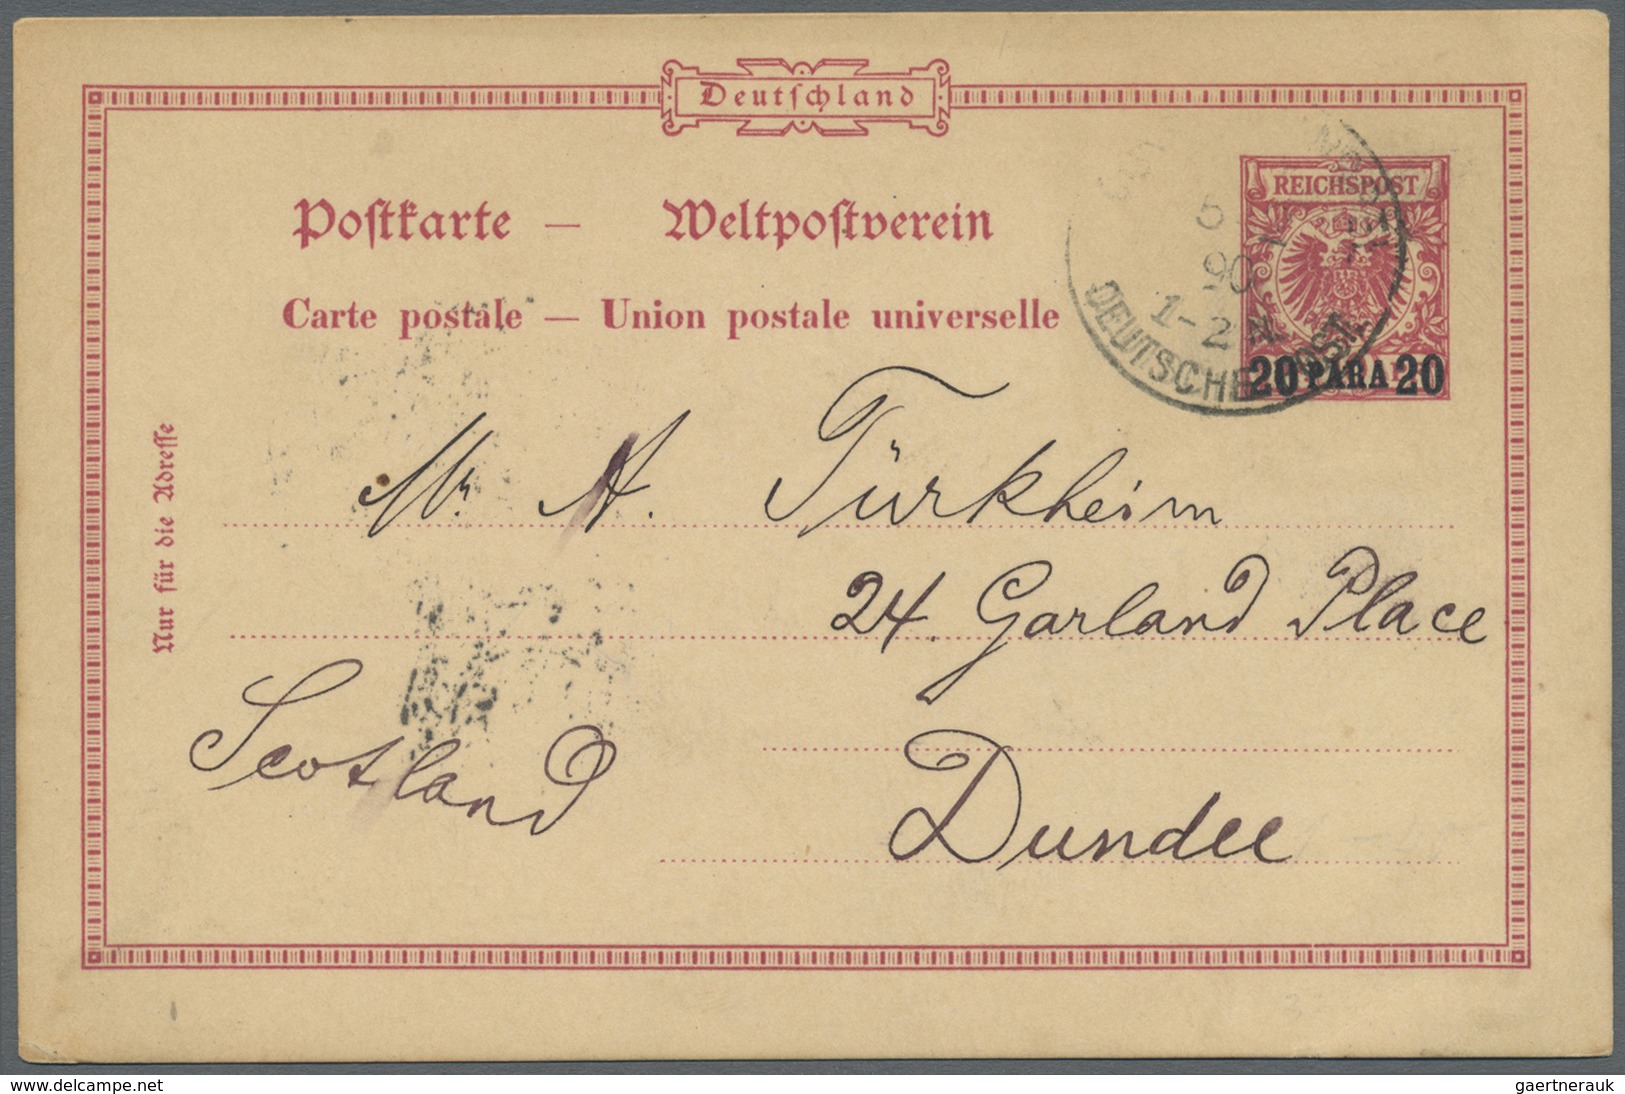 Deutſchland
REICHSPOST
Poſtkarte — Weltpoſtverein
Carte postale — Union postale universelle
5
90
1-2 N
DEUTSCHE POST
20 PARA 20
Nur für die Adreſſe
Mr A. Türkheim
24. Garland Place
Scotland
Dundee
www.delcampe.net
gaertnerauk